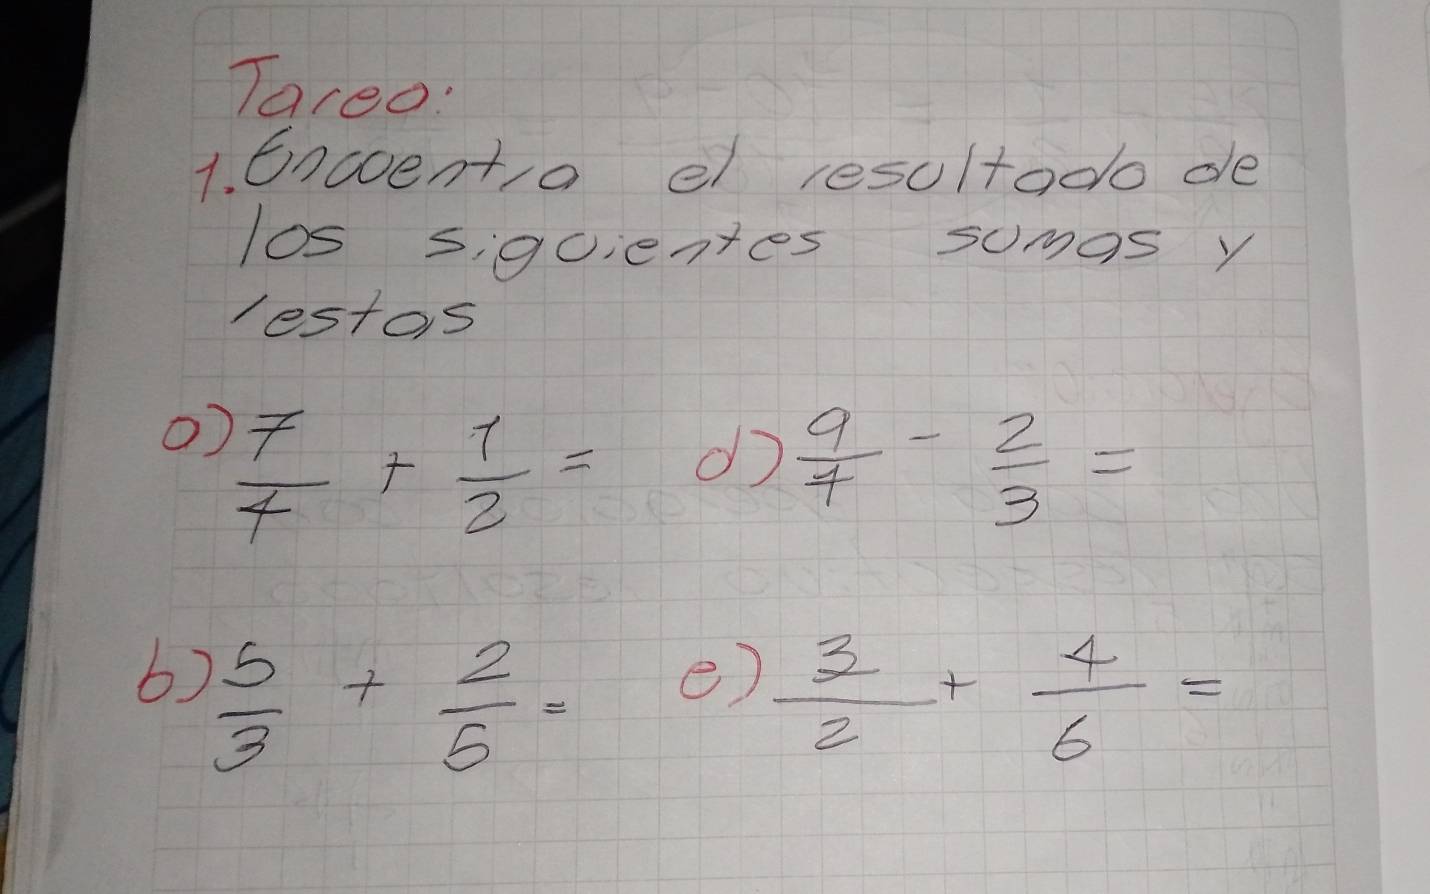 Tarea:
1. Encuentra el resultado de
los siguientes sumas y
restas
a) 7/4 + 1/2 = d) 9/4 - 2/3 =
b) 5/3 + 2/5 = e) 3/2 + 4/6 =